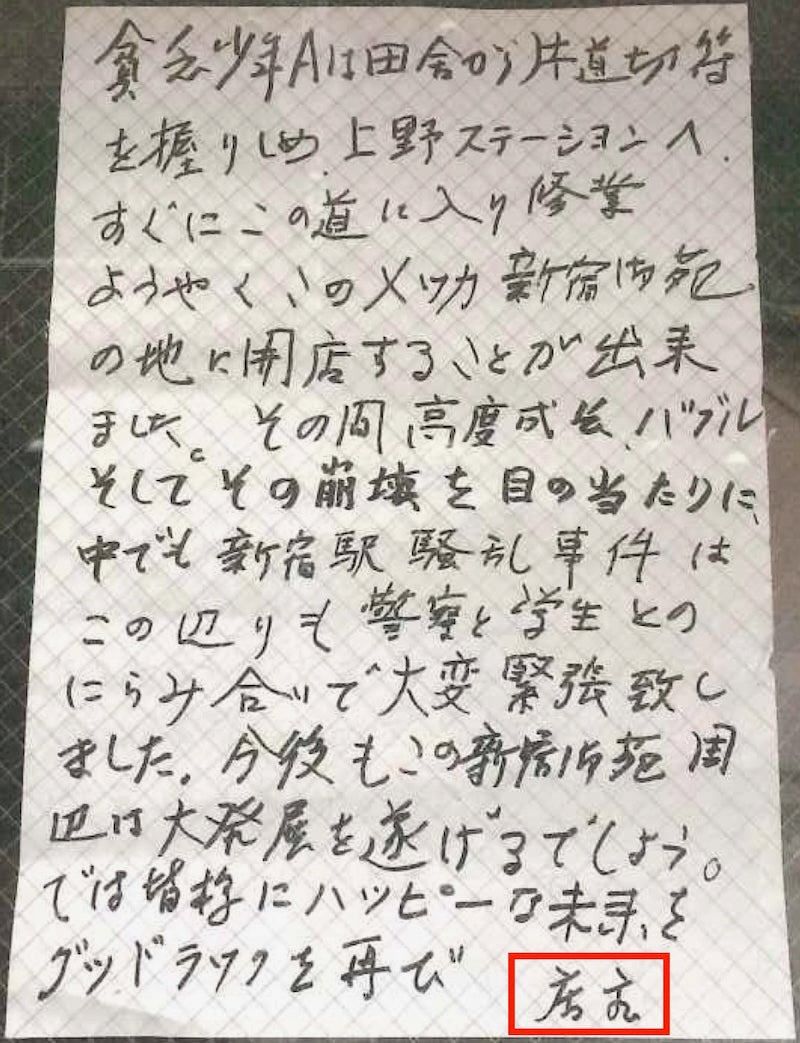 貧乏少年Aは田舎から片道切符
を握りしめ、上野ステーションへ、
すぐにこの道に入り修業
ようやくこのメッカ新宿御苑
の地に開店することが出来
ました。その間高度成長、バブル
そしてその崩壊を目の当たりに、
中でも新宿駅騒乱事件は
この辺りも警察と学生との
にらみ合いで大変緊張致し
ました。今後もこの新宿御苑周
辺は大発展を遂げるでしょう。
では皆様にハッピーな未来を
グッドラックを再び
店主